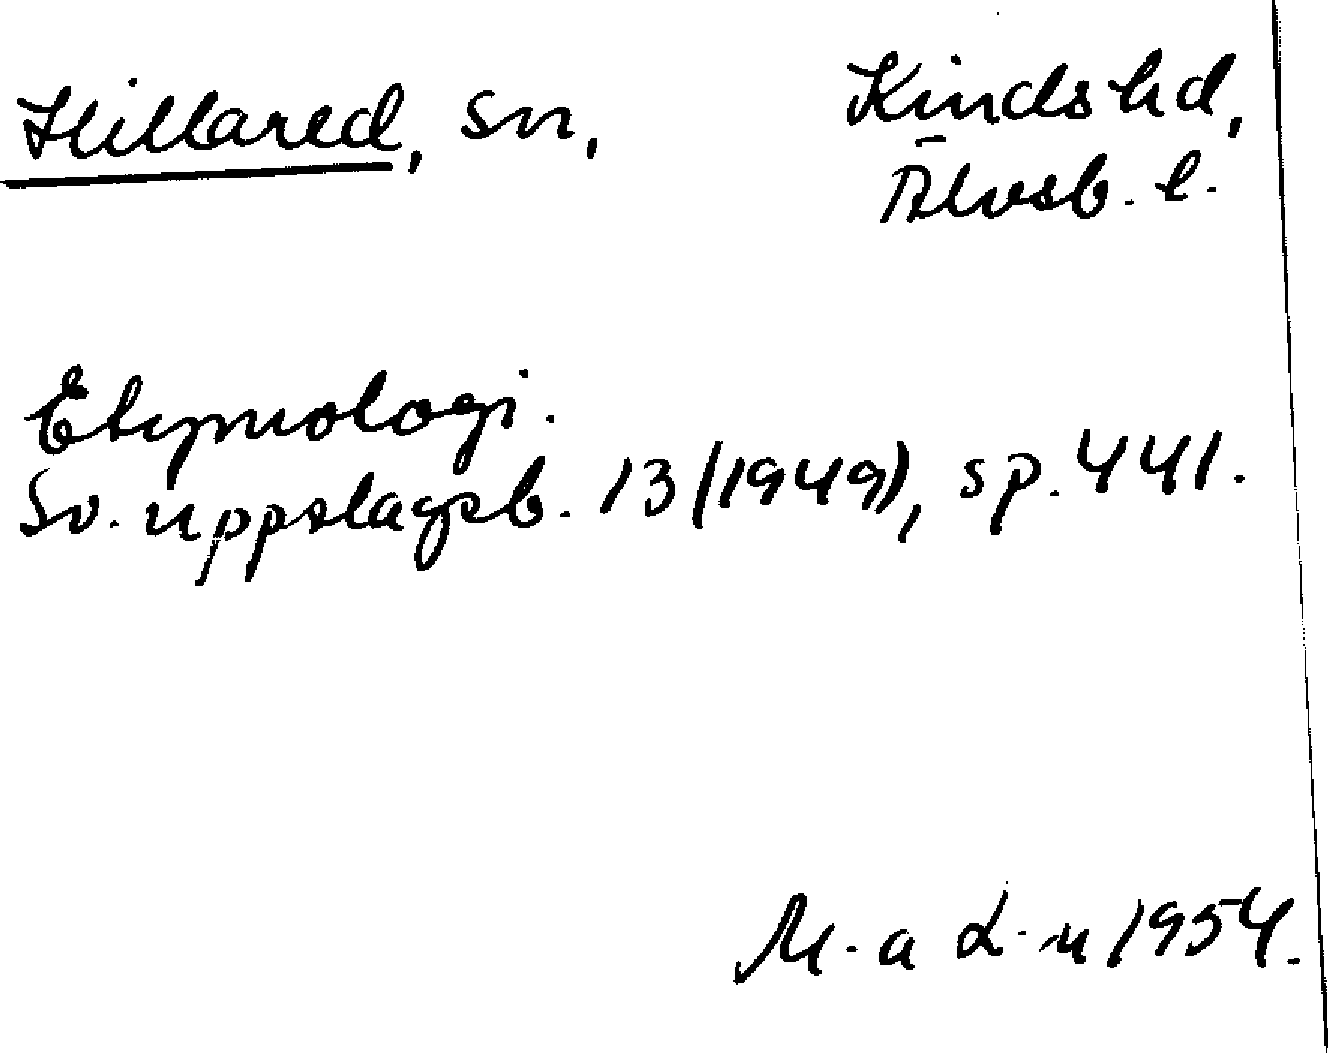 Hillared, sn,
Kinds hd,
Älvsb. l.
Etymologi.
Sv. uppslagsb. 13 (1949), sp. 441.
M-a L-n 1954.